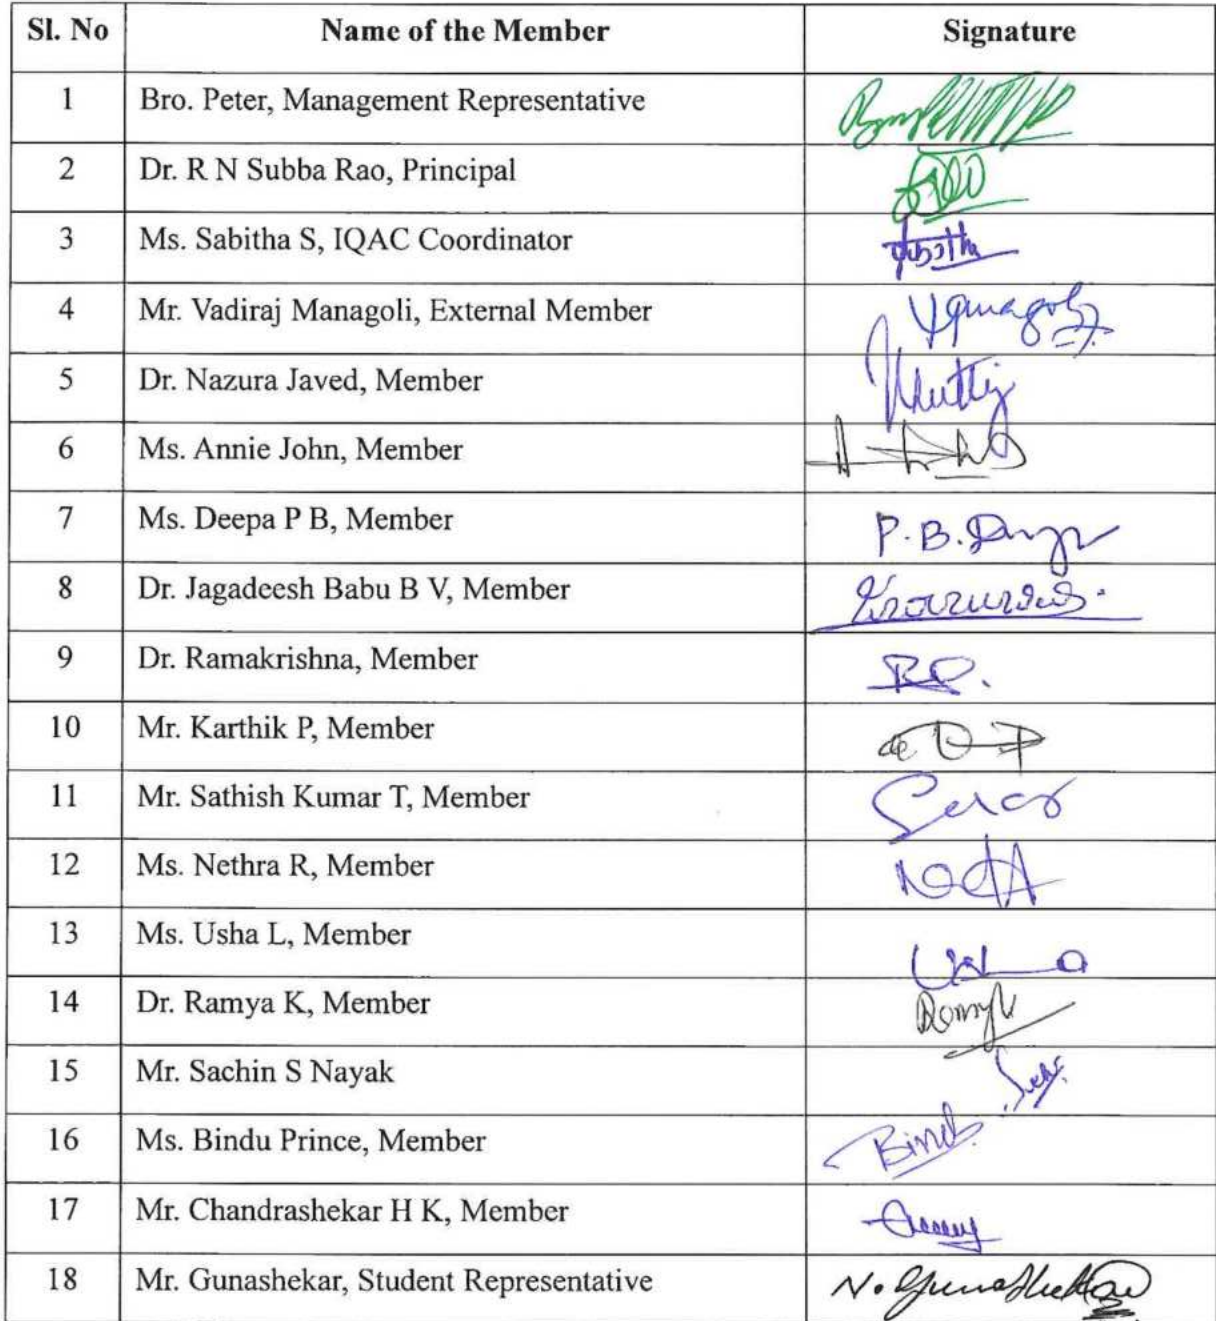 Sl. No Name of the Member Signature
1 Bro. Peter, Management Representative
2 Dr. R N Subba Rao, Principal
3 Ms. Sabitha S, IQAC Coordinator
4 Mr. Vadiraj Managoli, External Member
5 Dr. Nazura Javed, Member
6 Ms. Annie John, Member
7 Ms. Deepa P B, Member P.B.
8 Dr. Jagadeesh Babu B V, Member
9 Dr. Ramakrishna, Member
10 Mr. Karthik P, Member
11 Mr. Sathish Kumar T, Member
12 Ms. Nethra R, Member
13 Ms. Usha L, Member
14 Dr. Ramya K, Member
15 Mr. Sachin S Nayak
16 Ms. Bindu Prince, Member
17 Mr. Chandrashekar H K, Member
18 Mr. Gunashekar, Student Representative